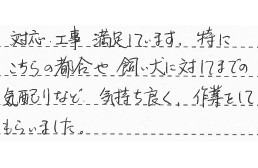 対応・工事 満足しています。特に
こちらの都合や 飼い犬に対してまでの
気配りなど 気持ち良く、作業をして
もらいました。